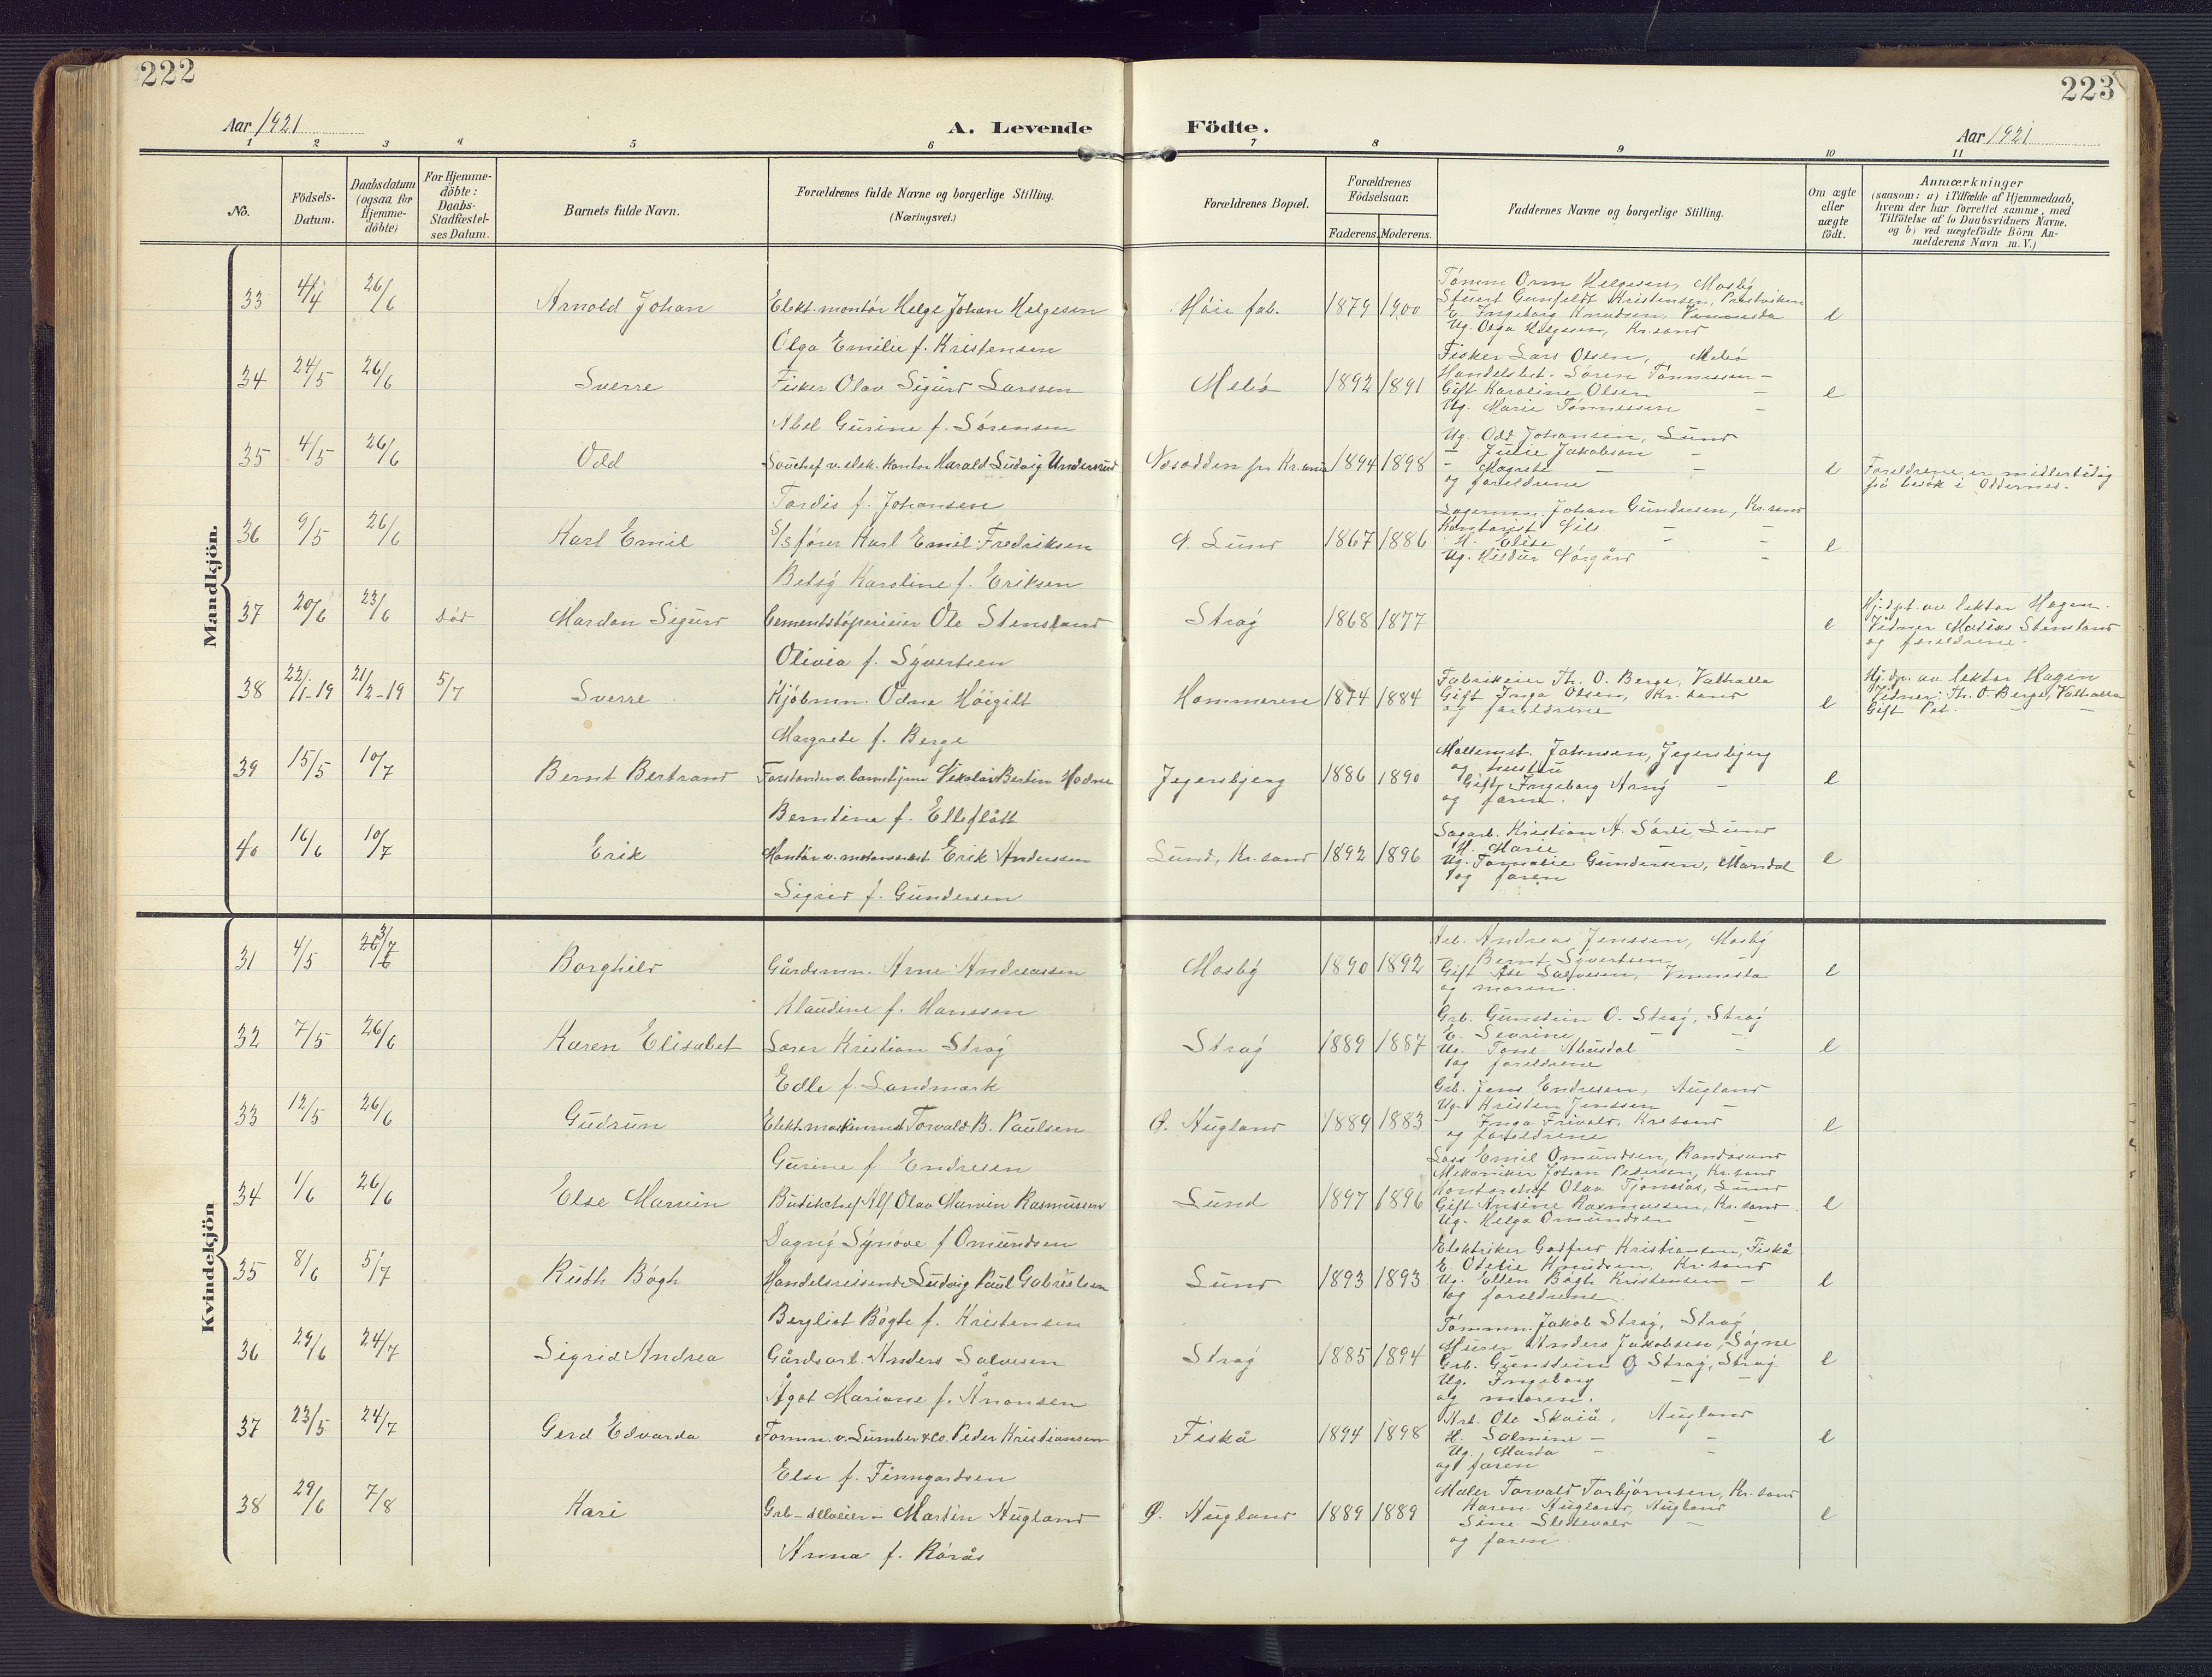 222
223
Aar 1921
A. Levende
Födte.
Aar 1921
1 2 3 4 5 6 7 8 9 10 11
No.
Födsels-
Datum.
Daabsdatum
(ogsaa for
Hjemme-
döbte)
For Hjemme-
döbte:
Daabs-
Stadfæstel-
ses Datum.
Barnets fulde Navn.
Forældrenes fulde Navne og borgerlige Stilling.
(Næringsvei.)
Forældrenes Bopæl.
Forældrenes
Födselsaar.
Faderens. Moderens.
Faddernes Navne og borgerlige Stilling.
Om ægte
eller
uægte
födt.
Anmærkninger
(saasom: a) i Tilfælde af Hjemmedaab,
hvem der har forrettet samme, med
Tilföielse af to Daabsvidners Navne,
og b) ved uægtefödte Börn An-
melderens Navn m. V.)
Mandkjön.
33 4/4 26/6 Arnold Johan Elekt. montör Helge Johan Helgesen
Olga Emilie f. Kristensen
Höie fab. 1879 1900
Tömm Orm Helgesen, Mosby
Stuert Gunfeldt Kristensen,
E. Ingeborg Knudsen, Vennesla
Ug. Olga Helgesen, Kr.sand
e
34 24/5 26/6 Sverre Fisker Olav Sigurd Larssen
Abel Gurine f. Sørensen
Mebö 1892 1891
Fisker Lars Olsen, Mebö
Handelsbet. Sören Tönnessen -
Gift Karoline Olsen -
Ug. Marie Tönnessen -
e
35 4/5 26/6 Odd Souchef v. elek. kontor Harald Ludvig Undersrud
Tordis f. Johansen
Næsodden pr Kr.ania 1894 1898
Ug. Odd Johansen, Lund
- Julie Jakobsen -
- Magrete - -
og foreldrene
e
Foreldrene er midlertidig
på besök i Oddernes.
36 9/5 26/6 Karl Emil S/S förer Karl Emil Fredriksen
Betsy Karoline f. Eriksen
N. Lund 1867 1886
Lagermn. Johan Gundersen, Kr.sand
Kontorist Nils - -
H. Elise - -
Ug. Hildur Nörgård -
e
37 20/6 23/6 död Mardon Sigurd Cementstöperieier Ole Stensland
Olivia f. Syvertsen
Stray 1868 1877
e
Hj.dpt. av lektor Hagen.
Vidner Mathias Stensland
og foreldrene.
38 22/1-19 21/2-19 5/7 Sverre Kjöbmn. Odne Höigilt
Margrete f. Berge
Hommeren 1874 1884
Fabrikeier Th. O. Berge, Valhalla
Gift Inga Olsen, Kr.sand
og foreldrene
e
Hj.dp. av lektor Hagen
Vidner: Th. O. Berge, Valhalla
Gift Pet. - -
39 15/5 10/7 Bernt Bertrand Forstander v. barnehjem Nikolai Bertin Hodne
Berntine f. Elleflått
Jegersbjerg 1886 1890
Jegersbjerg
og hustru
Gift Ingeborg Arny -
og faren.
e
40 16/6 10/7 Erik Montör v. Erik Anderssen
Sigrid f. Gundersen
Lund, Kr.sand 1892 1896
Sagarb. Kristian A. Sörli, Lund
H. Marie
Ug. Tomalie Gundersen, Mandal
og faren
e
Kvindekjön
31 4/5 26/6 3/7 Borghild Gårdsmn. Arne Andreassen
Klaudine f. Hanssen
Mosby 1890 1892
Arb. Andreas Jenssen, Mosby
- Bernt Syvertsen -
Gift Åse Salvesen, Vennesla
og moren.
e
32 7/5 26/6 Karen Elisabet Lærer Kristian Stray
Edle f. Landmark
Stray 1889 1887
Grb. Gunstein O. Stray, Stray
E. Severine - -
Ug. Tone Abusdal -
og foreldrene
e
33 12/5 26/6 Gudrun Elekt. maskinmest Torvald B. Paulsen
Gurine f. Endresen
Ø. Augland 1889 1883
Grb. Jens Endresen, Augland
Ug. Kristen Jenssen -
- Inga Frivold, Kr.sand
og foreldrene
e
34 1/6 26/6 Else Marvin Butikchef Alf Olav Marvin Rasmussen
Dagny Synöve f Omundsen
Lund 1897 1896
Los Emil Omundsen, Randøsund
Mekaniker Johan Pedersen, Kr.sand
Kontorchef Olav Tjomsås, Lund
Gift Ansine Rasmussen, Kr.sand
Ug. Helga Omundsen -
e
35 8/6 5/7 Ruth Bögh Handelsreisende Ludvig Paul Gabrielsen
Bergliot Bögh f. Kristensen
Lund 1893 1893
Elektriker Godfred Kristiansen, Fiskå
E. Otelie Knudsen, Kr.sand
Ug. Ellen Bögh Kristensen -
og foreldrene
e
36 29/6 24/7 Sigrid Andrea Gårdsarb. Anders Salvesen
Ågot Mariane f. Ånonsen
Stray 1885 1894
Tömmn. Jakob Stray, Stray
Murer Anders Jakobsen, Sögne
Grb. Gunstein O. Stray, Stray
Ug. Ingeborg - -
og moren.
e
37 23/5 24/7 Gerd Edvarda Formn. v. Lumber & Co. Peder Kristiansen
Else f. Finngardsen
Fiskå 1894 1898
Arb. Ole Skaiå, Augland
H. Salmine - -
Ug. Marta - -
og faren
e
38 29/6 7/8 Kari Grb - selveier - Martin Augland
Anna f. Rörås
Ø. Augland 1889 1889
Maler Torvald Torbjörnsen, Kr.sand
Karen Augland, Augland
Sine Slettevold -
og faren
e